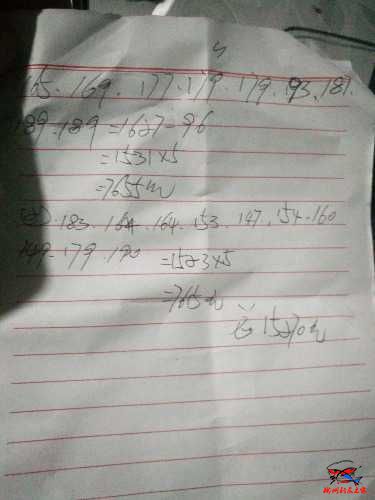 165.169.177.179.179.193.187.
189.189=1627-96
=1531×5
=7655m
.183.164.164.153.147.154.160
149.179.190 =1523×5
=7615m
15270m